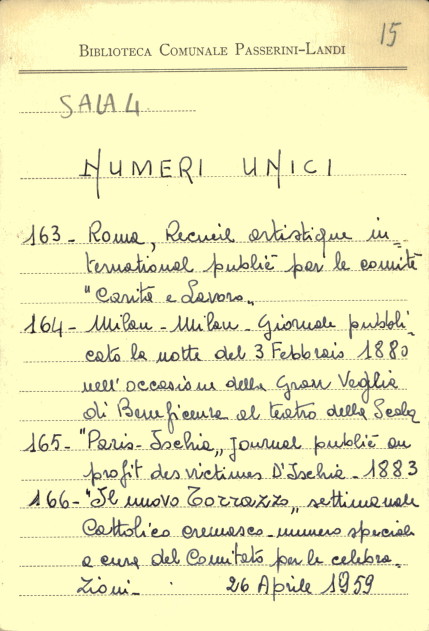 15
BIBLIOTECA COMUNALE PASSERINI-LANDI
SALA 4
NUMERI UNICI
163 - Roma, Recueil artistique in=
ternational publié par le comité
"Carità e Lavoro„
164 - Milan - Milan - Giornale pubbli-
cato la notte del 3 Febbraio 1880
nell'occasione della Gran Veglia
di Beneficenza al teatro della Scala
165 - "Paris-Ischia„ Journal publié au
profit des victimes D'Ischia - 1883
166 - "Il nuovo Torrazzo„ settimanale
Cattolico cremasco - numero speciale
a cura del Comitato per le celebra-
zioni - 26 Aprile 1959